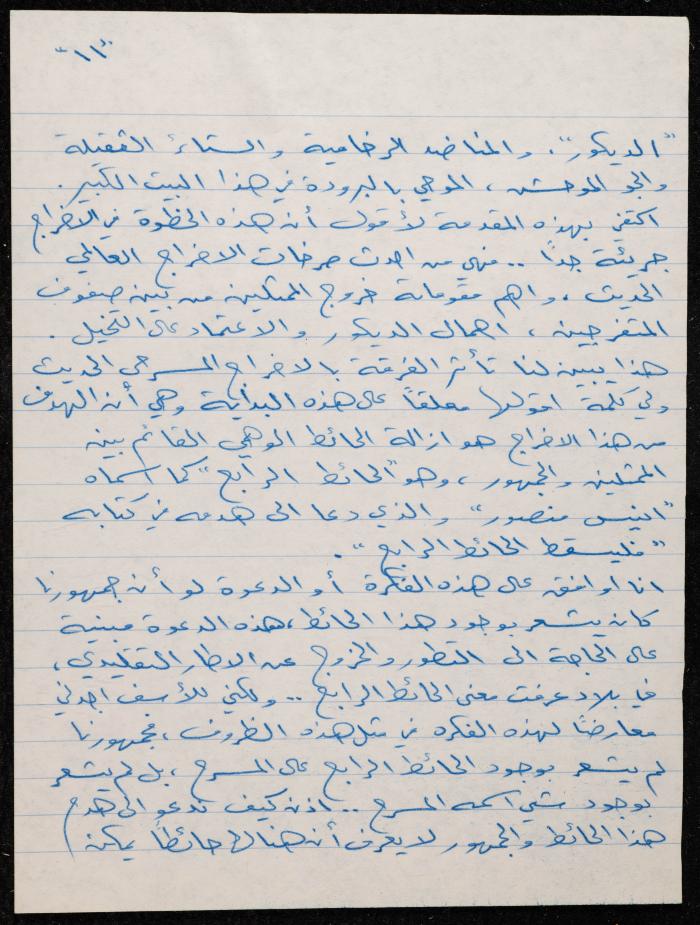 "١١"
"الديكور". والمناضد الرخامية والستائر الثقيلة
والجو الموحش، الموحي بالبرودة في هذا البيت الكبير.
اكتفي بهذه المقدمة لأقول أن هذه الخطوة في الاخراج
جريئة جداً .. فهي من احدث صرخات الاخراج العالمي
الحديث، واهم مقوماته خروج الممثلين من بين صفوف
المتفرجين، اهمال الديكور والاعتماد على التخيل.
هذا يبين لنا تأثر الفرقة بالاخراج المسرحي الحديث
ولي كلمة اقولها معلقاً على هذه البداية وهي أن الهدف
من هذا الاخراج هو ازالة الحائط الوهمي القائم بين
الممثلين والجمهور، وهو "الحائط الرابع" كما اسماه
"انيس منصور" والذي دعا الى هدمه في كتابه
"فليسقط الحائط الرابع".
انا اوافق على هذه الفكرة أو الدعوة لو أن جمهورنا
كان يشعر بوجود هذا الحائط، هذه الدعوة مبنية
على الحاجة الى التطور والخروج عن الاطار التقليدي،
في بلاد عرفت معنى الحائط الرابع .. ولكني للأسف اجدني
معارضاً لهذه الفكره في مثل هذه الظروف، فجمهورنا
لم يشعر بوجود الحائط الرابع على المسرح، بل لم يشعر
بوجود شيء اسمه المسرح .. اذن كيف ندعو الى هدم
هذا الحائط والجمهور لا يعرف أن هنالك حائطاً يمكن